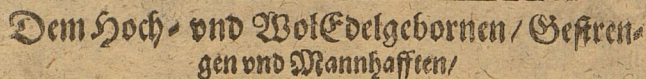 Dem Hoch- vnd WolEdelgebornen/ Gestren-
gen vnd Mannhafften/